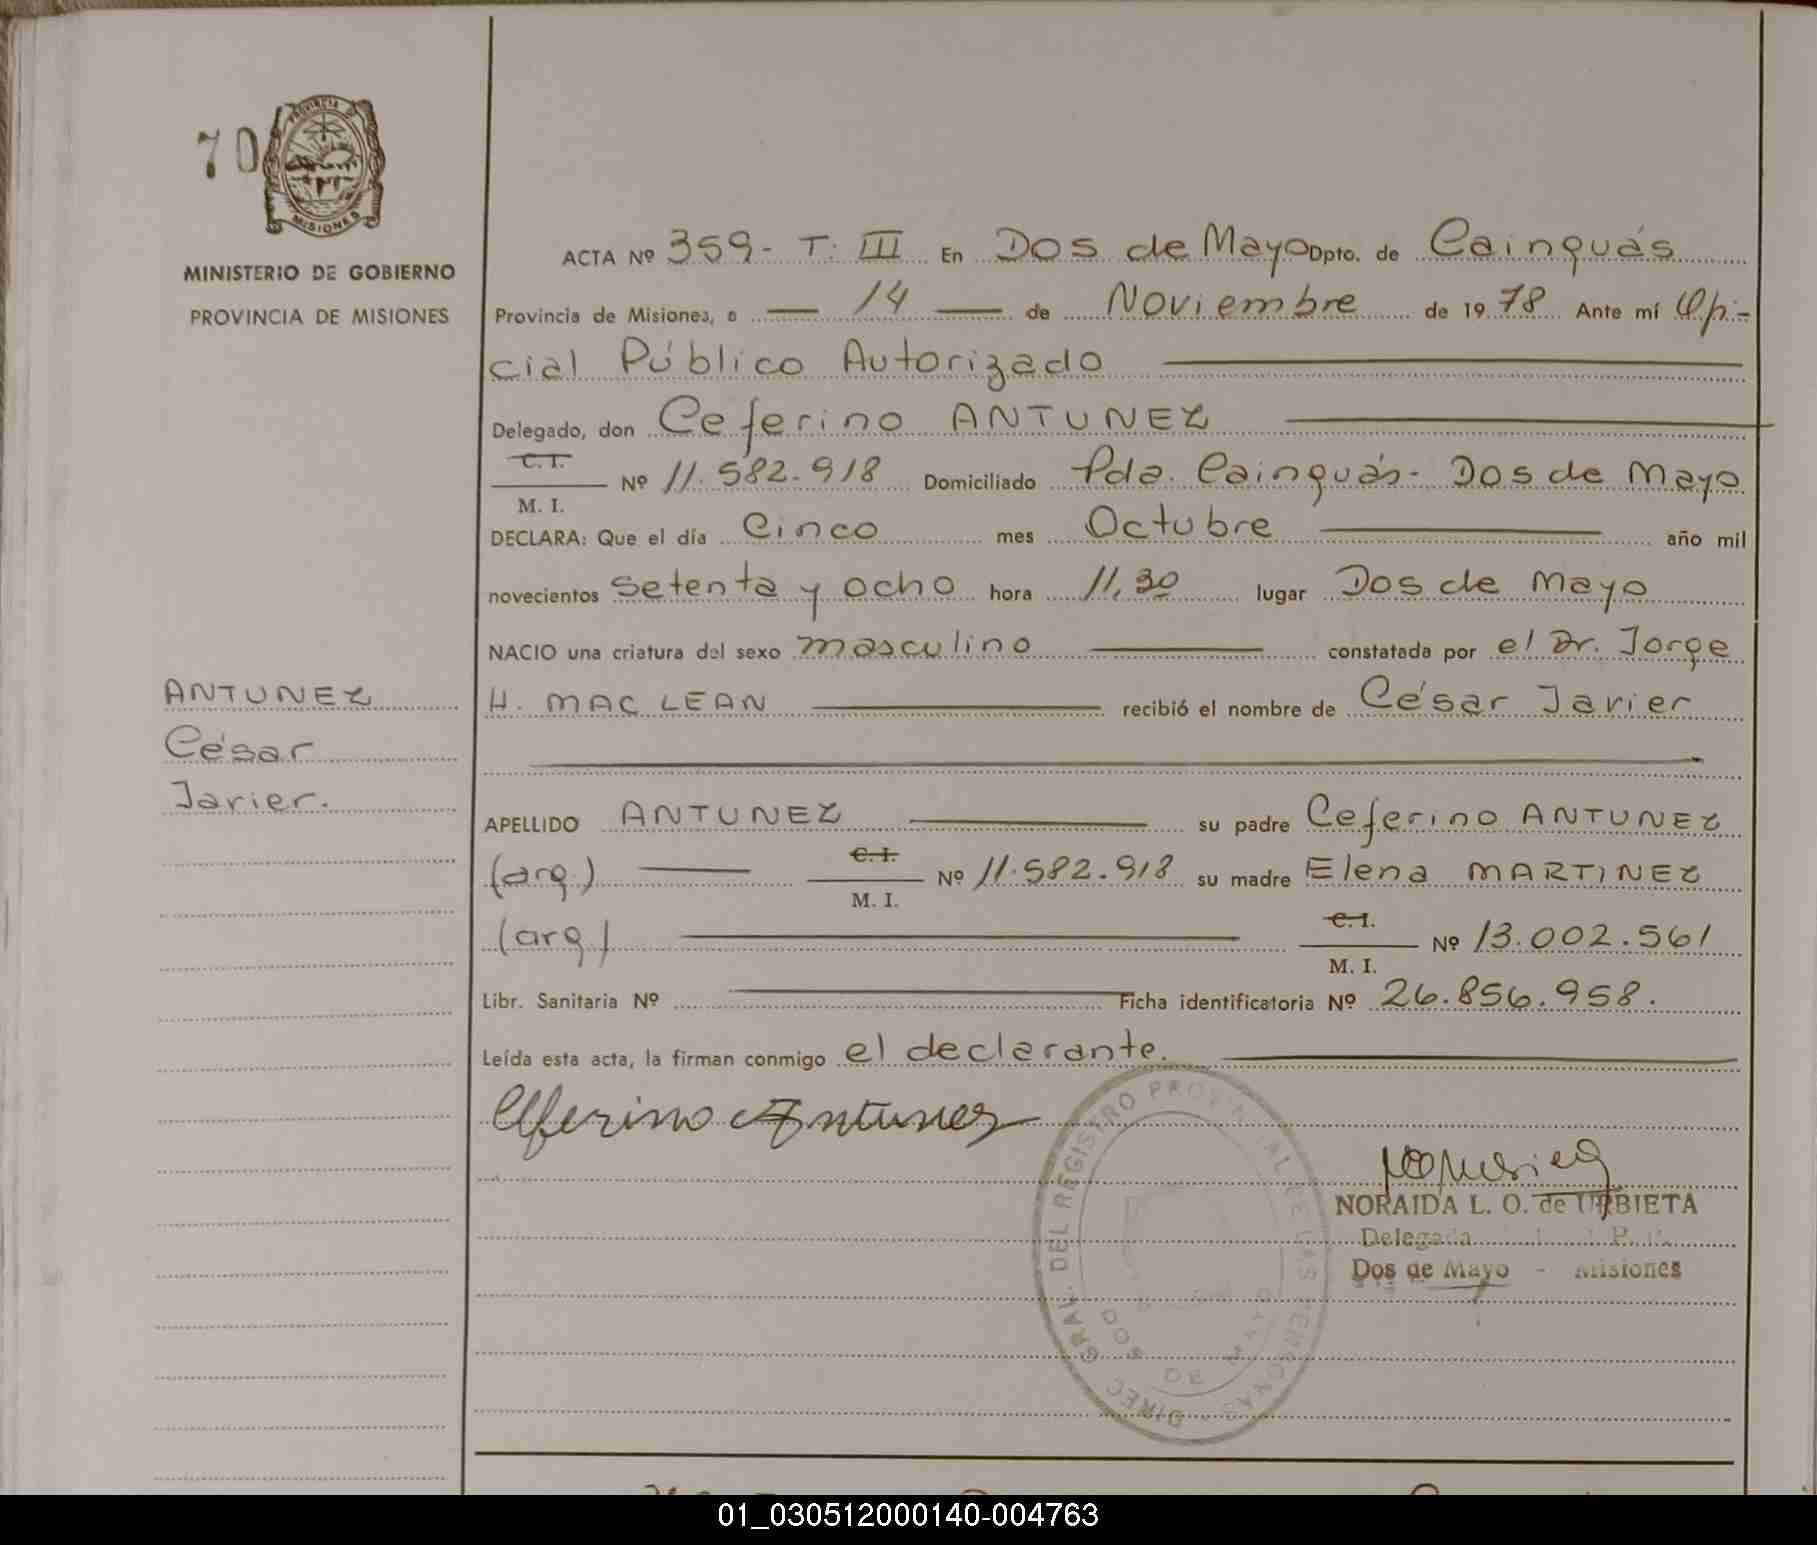 70
PROVINCIA DE
MISIONES
MINISTERIO DE GOBIERNO
PROVINCIA DE MISIONES
ANTUNEZ
César
Javier.
ACTA Nº 359- T. III En Dos de Mayo Dpto. de Cainguás
Provincia de Misiones, a — 14 — de Noviembre de 1978 Ante mí Ofi-
cial Público Autorizado
Delegado, don Ceferino ANTUNEZ
C. I.
M. I. Nº 11.582.918 Domiciliado Pda. Cainguás- Dos de Mayo
DECLARA: Que el día Cinco mes Octubre año mil
novecientos setenta y ocho hora 11,30 lugar Dos de Mayo
NACIO una criatura del sexo masculino constatada por el Dr. Jorge
H. MAC LEAN recibió el nombre de César Javier
APELLIDO ANTUNEZ su padre Ceferino ANTUNEZ
(arg.) C. I. M. I. Nº 11.582.918 su madre Elena MARTINEZ
(arg) C. I. M. I. Nº 13.002.561
Libr. Sanitaria Nº Ficha identificatoria Nº 26.856.958.
Leída esta acta, la firman conmigo el declarante.
Ceferino Antunez
DIREC. GRAL. DEL REGISTRO PROVINCIAL DE LAS PERSONAS
DOS DE MAYO
NORAIDA L. O. de URBIETA
Delegada
Dos de Mayo - Misiones
01_030512000140-004763